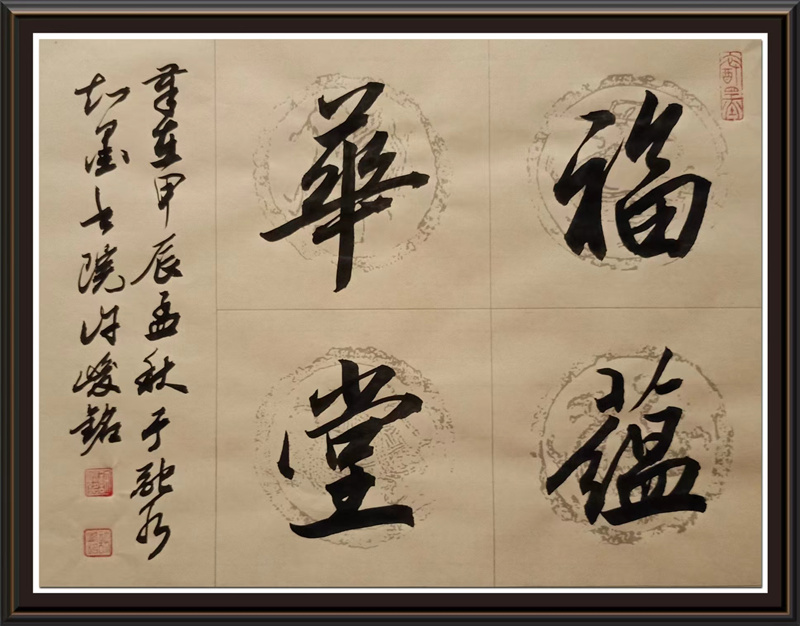 福蘊
華堂
在甲辰孟秋于融水
知墨书院许峻銘